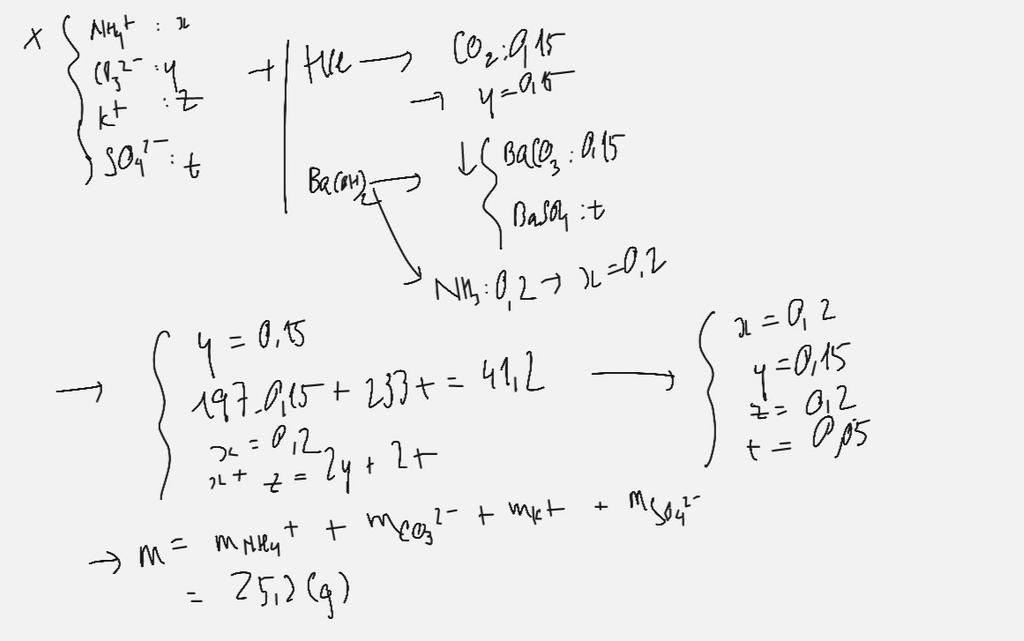 X { NH₄⁺ : x
CO₃²⁻ : y
K⁺ : z
SO₄²⁻ : t
+ | HCl → CO₂ : 0,15
→ y = 0,15
Ba(OH)₂ → ↓ { BaCO₃ : 0,15
BaSO₄ : t
NH₃ : 0,2 → x = 0,2
→ { y = 0,15
197.0,15 + 233t = 41,2
x = 0,2
x + z = 2y + 2t
→ { x = 0,2
y = 0,15
z = 0,2
t = 0,05
→ m = mNH₄⁺ + mCO₃²⁻ + mK⁺ + mSO₄²⁻
= 25,2 (g)